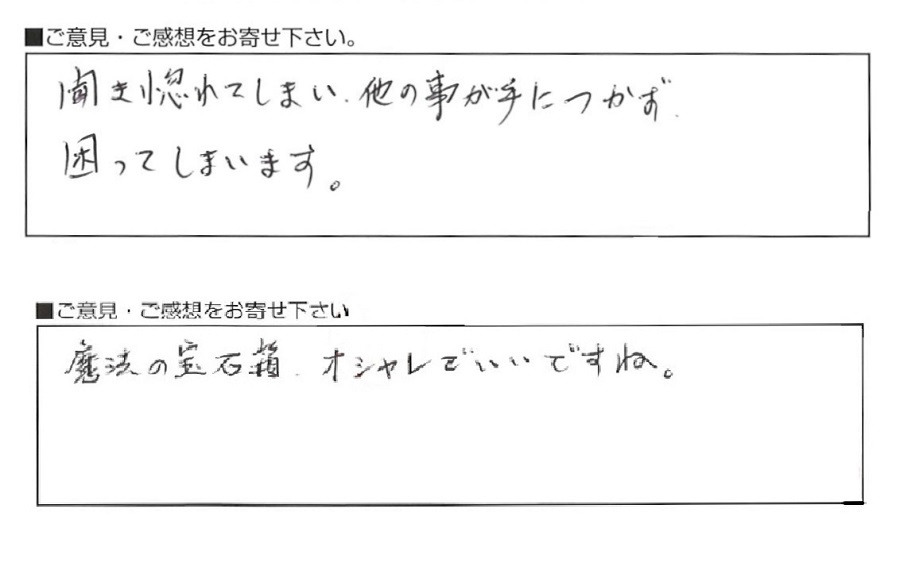 ■ご意見・ご感想をお寄せ下さい。
聞き惚れてしまい、他の事が手につかず、
困ってしまいます。
■ご意見・ご感想をお寄せ下さい
魔法の宝石箱、オシャレでいいですね。